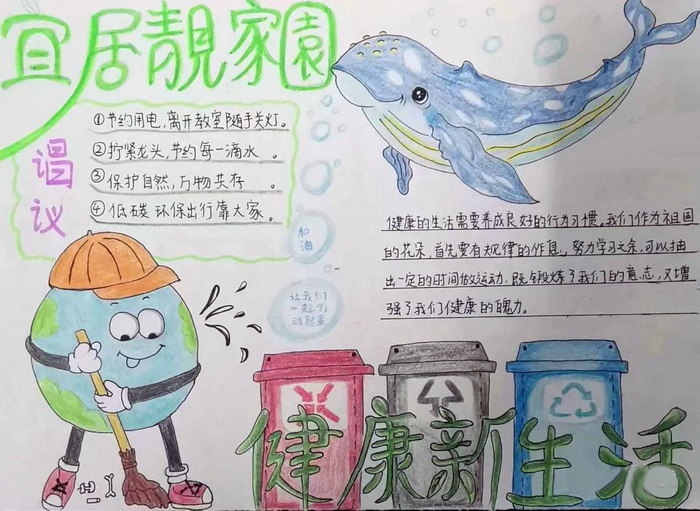 宜居靓家園
倡议
①节约用电,离开教室随手关灯。
②拧紧龙头,节约每一滴水。
③保护自然,万物共存。
④低碳环保出行靠大家。
加油
让我们
一起行
动起来
健康的生活需要养成良好的行为习惯。我们作为祖国
的花朵,首先要有规律的作息,努力学习之余,可以抽
出一定的时间做运动,既锻炼了我们的意志,又增
强了我们健康的魄力。
健康新生活